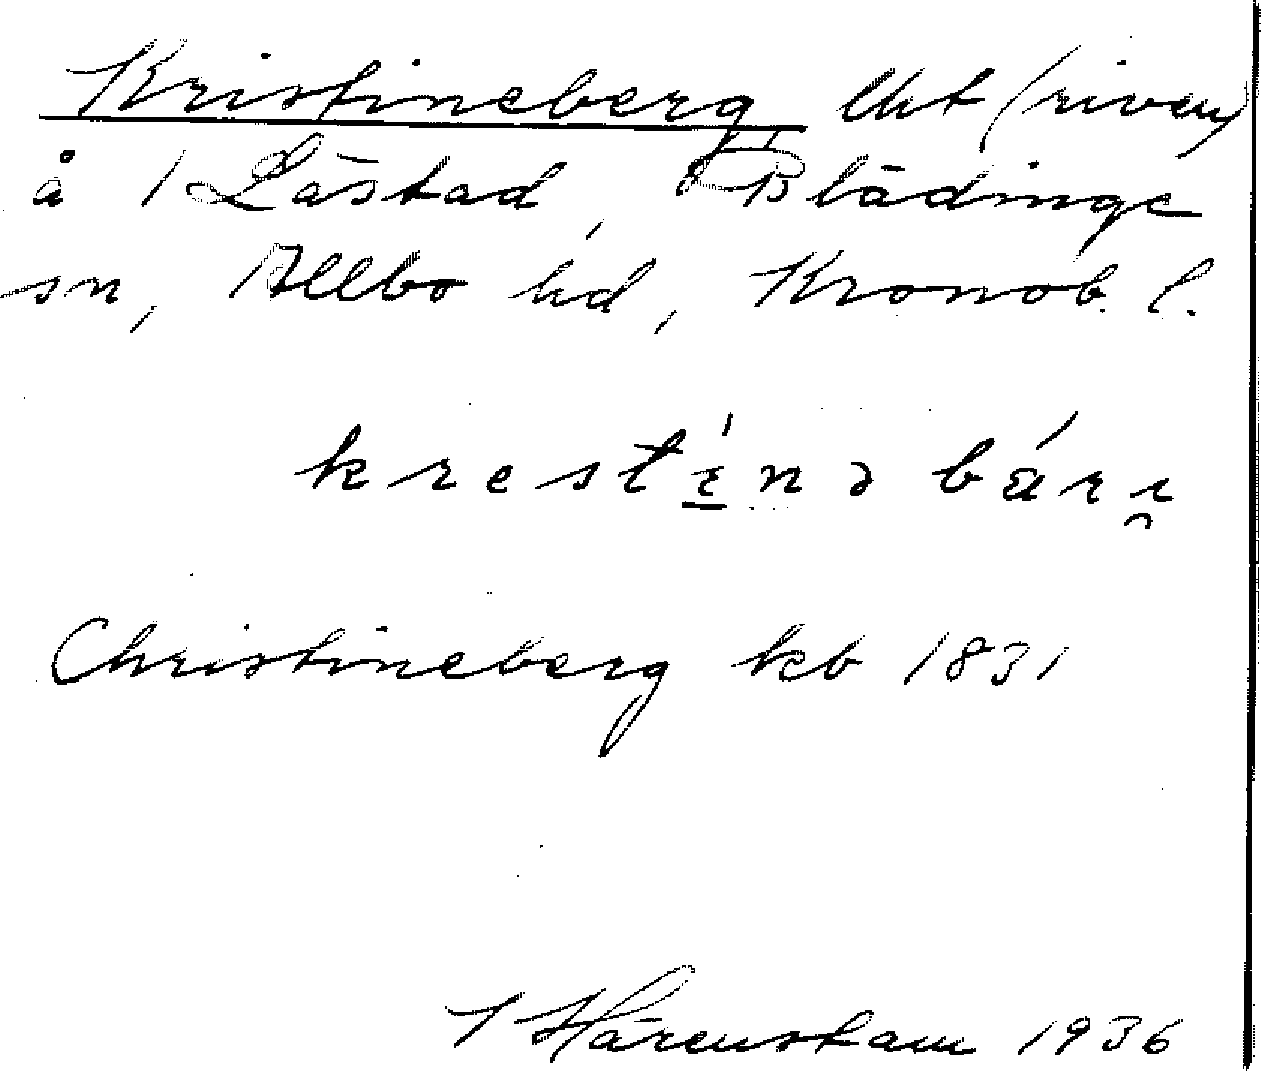 Kristineberg lht (riven)
å 1 Låstad, Blädinge
sn, Allbo hd, Kronob. l.
krestinə bári̯
Christineberg kb 1831
T Hårenstam 1936